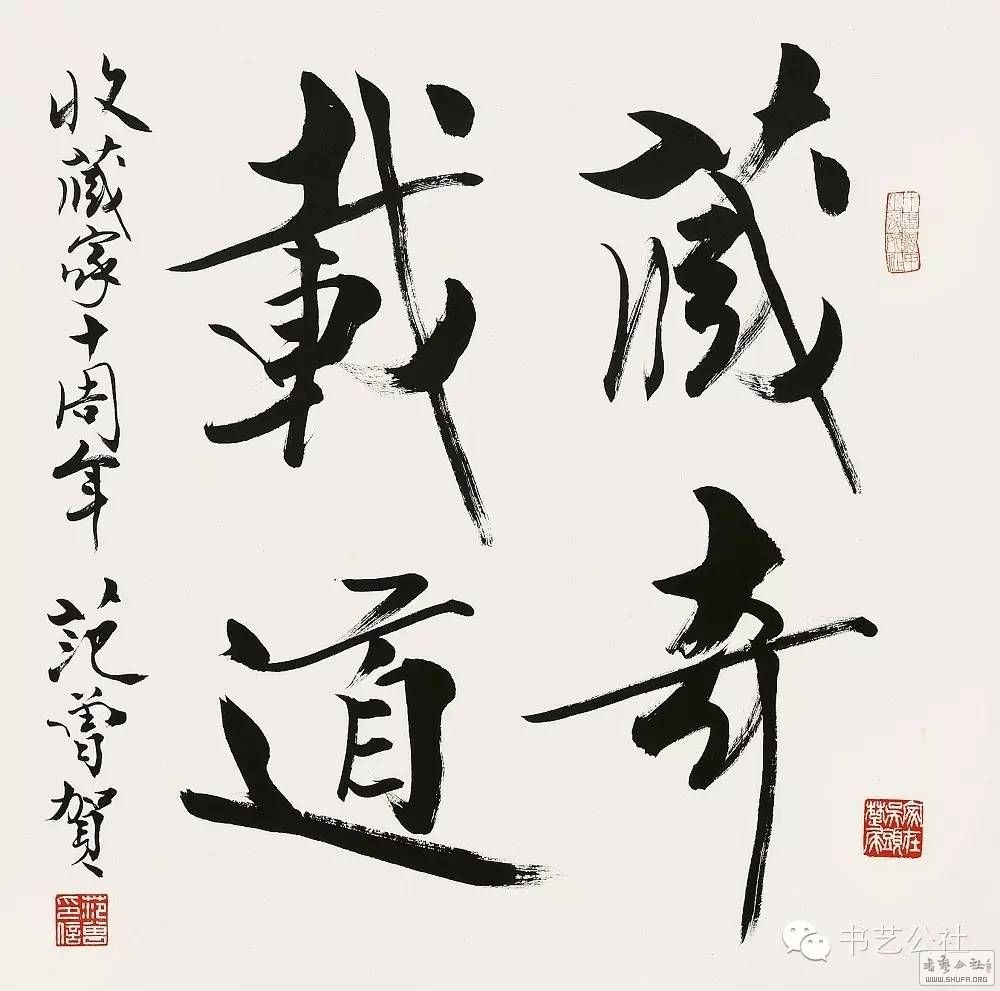 藏奇
載道
收藏家十周年 范曾賀
范曾印信
家在吴頭楚尾
书艺公社
书艺公社
WWW.SHUFA.ORG